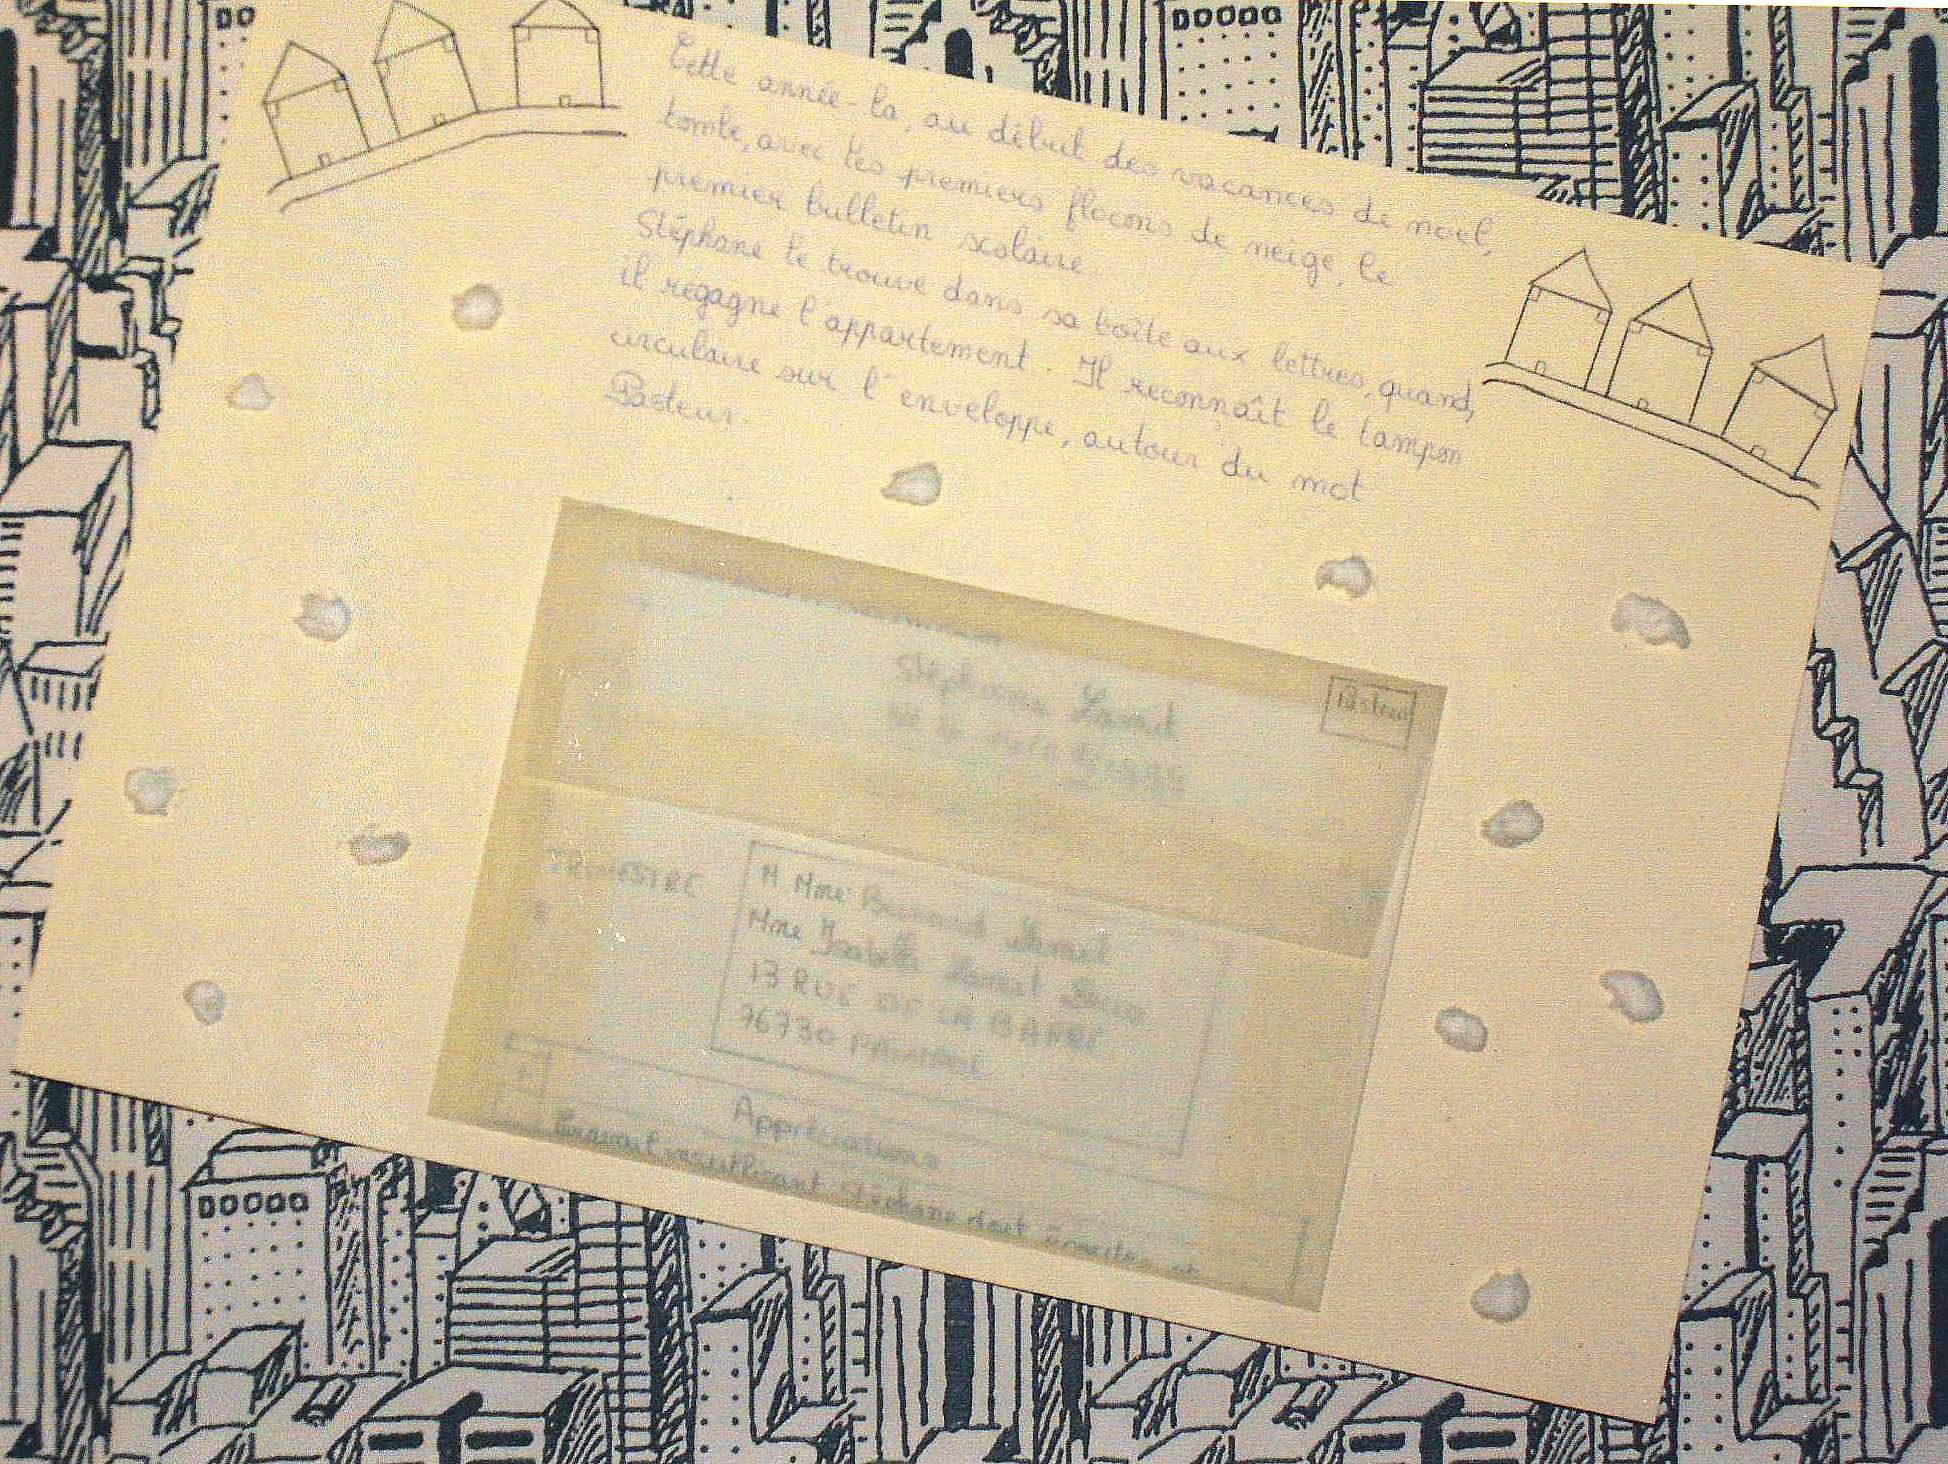 Cette année-la, au début des vacances de noël,
tombe, avec les premiers flocons de neige, le
premier bulletin scolaire.
Stéphane le trouve dans sa boîte aux lettres, quand,
il regagne l'appartement. Il reconnaît le tampon
circulaire sur l'enveloppe, autour du mot
Pasteur.
Pasteur
Stéphane
TRIMESTRE
M Mme Bernard
Mme Isabelle
13 RUE DE LA BARRE
76730
Appréciations
Travail Stéphane doit